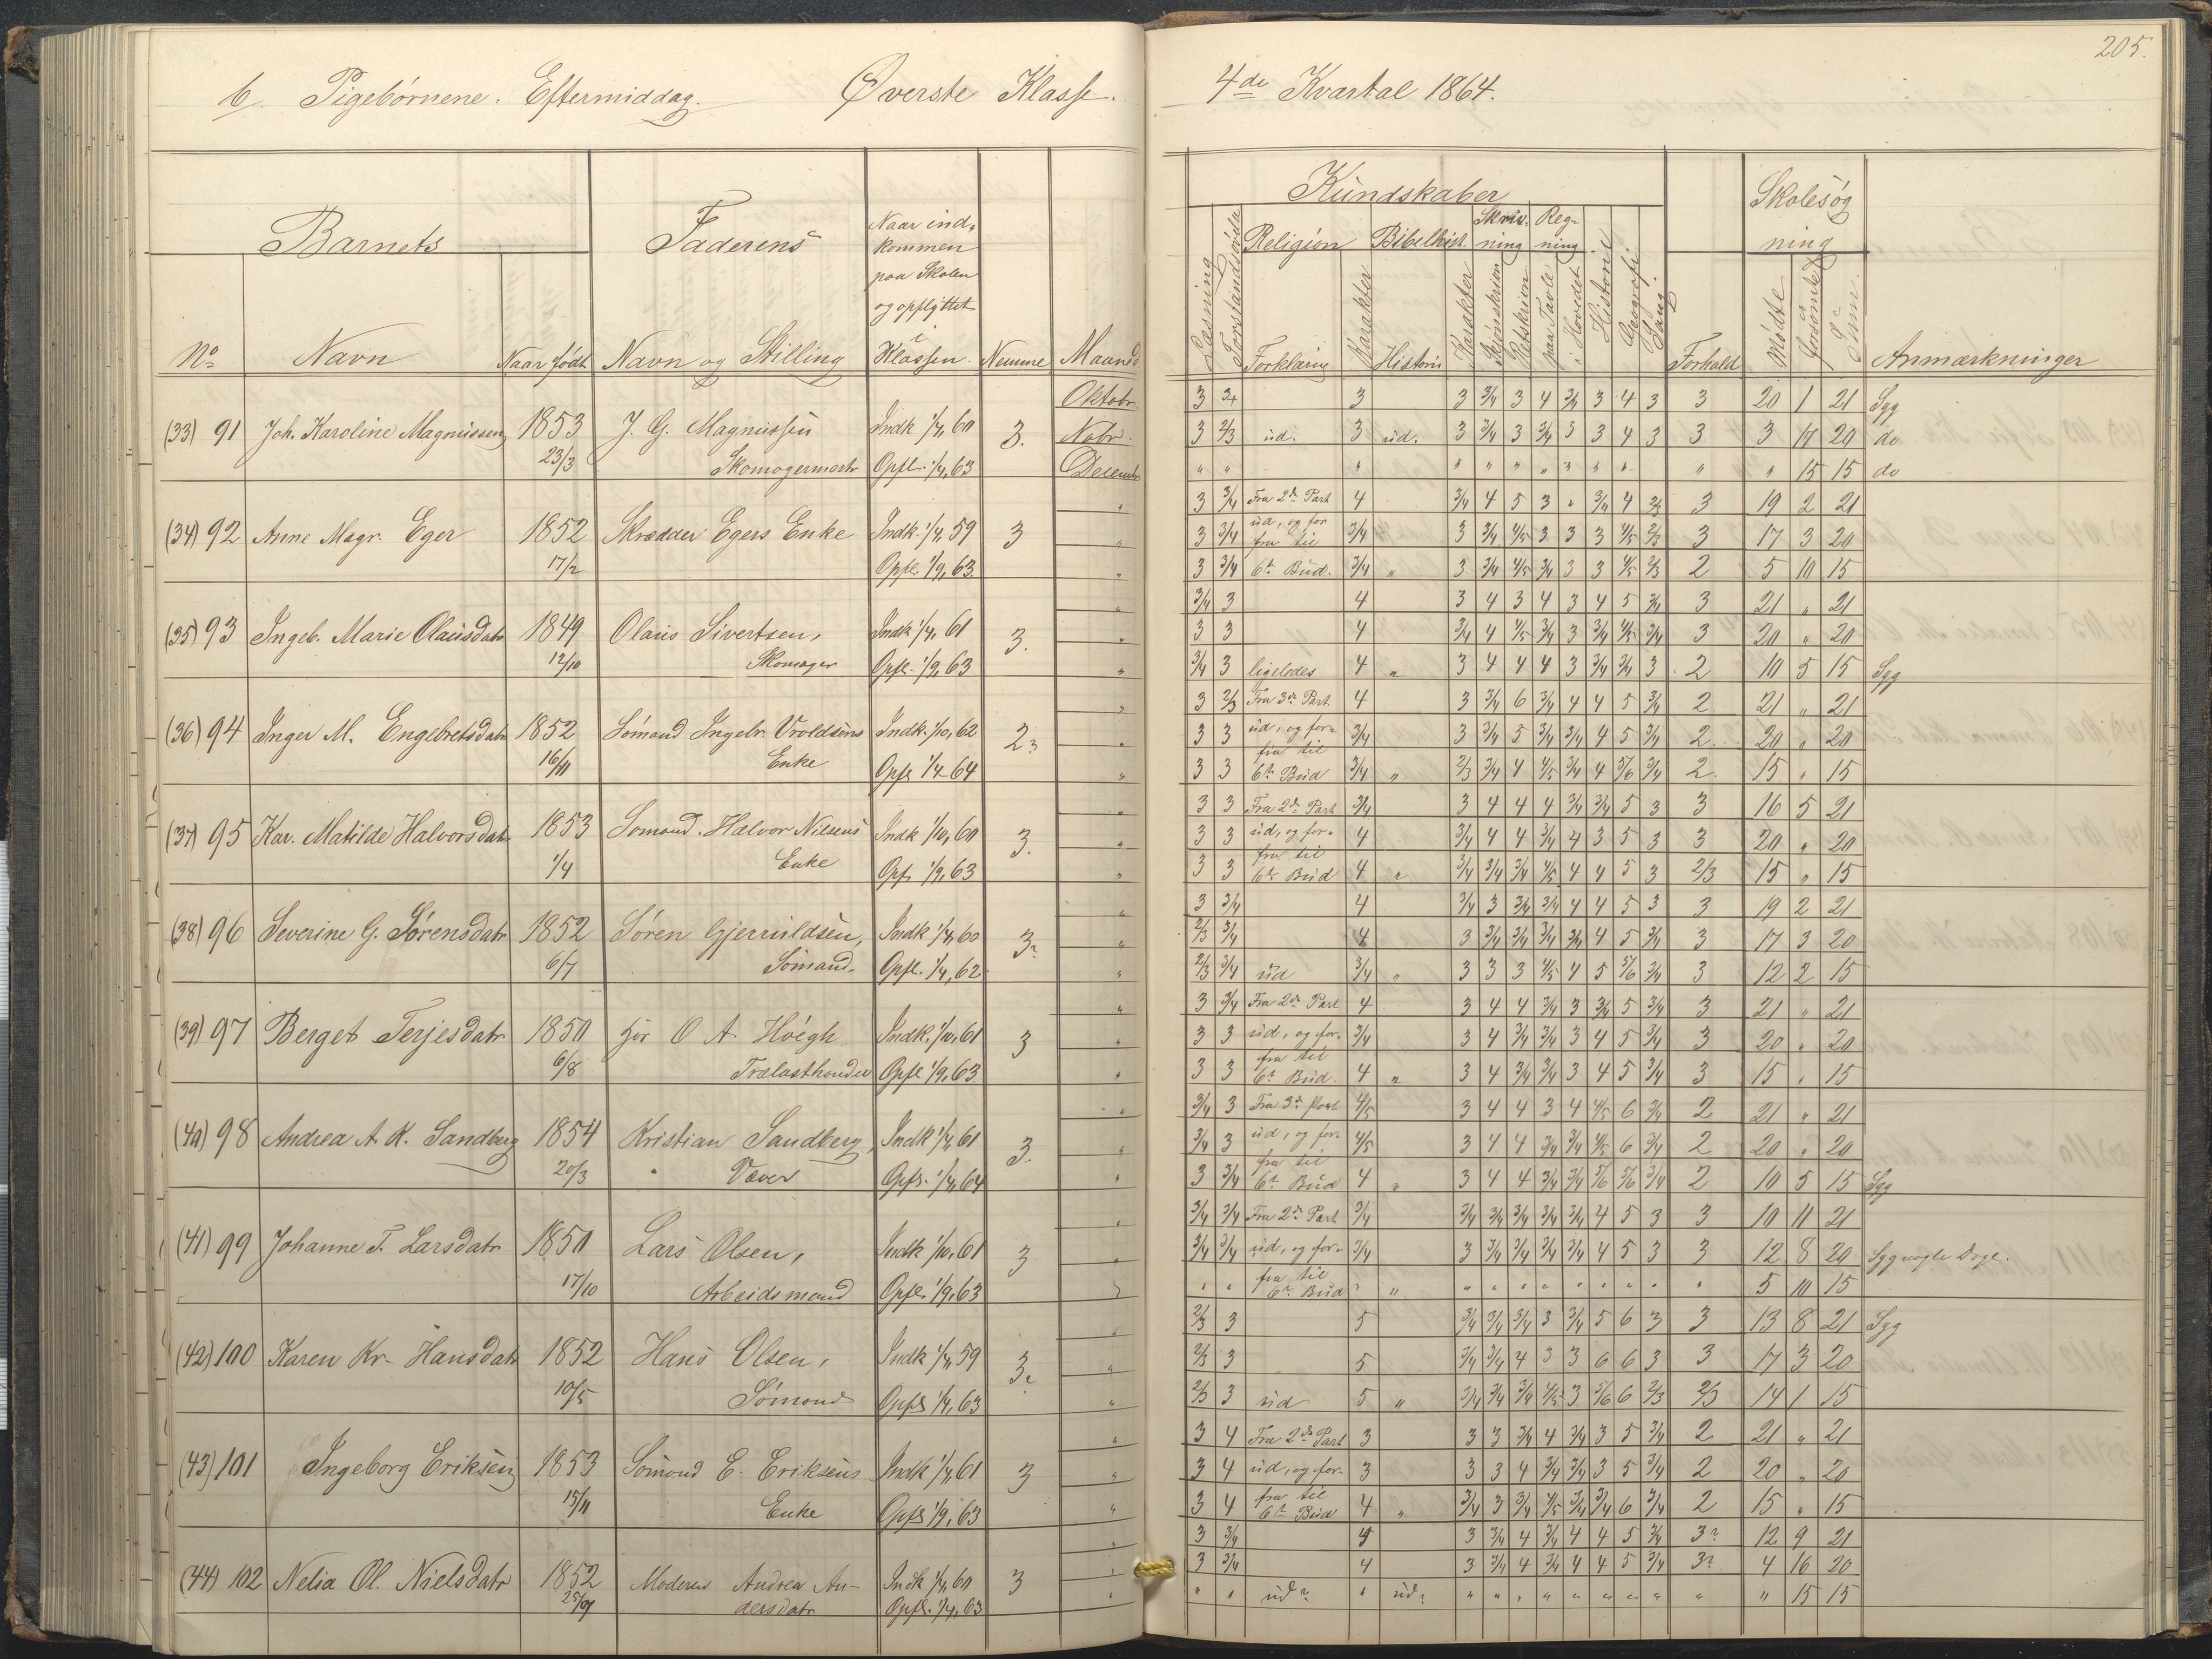 205.
6. Pigebørnene. Eftermiddag. Øverste Klasse.
4de Kvartal 1864.
Barnets
Faderens
Naar ind-
kommen
paa Skolen
og opflyttet
i
Klassen
No
Navn
Naar født
Navn og Stilling
Nemme
Maaned
Kundskaber
Skolesøg
ning
Læsning
Religion
Bibelhist.
Skriv-
ning
Reg-
ning
Forklaring
Karakter
Historie
Karakter
Skjønskrivn
Retskrivn
paa Tavle
i Hovedet
Historie
Geografi
Sang
Forhold
Mødte
forsømte
Sum
Anmærkninger
(33) 91 Joh. Karoline Magnussen 1853 J. G. Magnussen Indk 1/4, 60 3. Oktobr.
23/3 Skomagermestr Opfl. 1/4, 63 Novbr.
Decembr
3 1 3 3 3/4 3 4 3/4 3 4 3 3 20 1 21 Syg
3 2/3 ud. 3 ud. 3 3/4 3 3/4 3 3 4 3 3 3 17 20 do
" " " " " " " " " " " " 15 15 do
(34) 92 Anne Magr. Eger 1852 Skrædder Egers Enke Indk. 1/4, 59 3
17/2 Opfl. 1/9, 63.
3 3/4 Fra 2de Part 4 3/4 4 5 3 " 3/4 4 2/3 3 19 2 21
3 3/4 ud, og for fra til 3/4 3 3/4 4/5 3 3 3 4/5 2/3 3 17 3 20
3 3/4 6te Bud. 3/4 " 3 3/4 4/5 3/4 3 3 4/5 2/3 2 5 10 15
(35) 93 Ingeb. Marie Olausdatr 1849 Olaus Sivertsen, Indk 1/4, 61 3.
12/10 Skomager Opfl. 1/9, 63
3/4 3 4 3 4 3 4 3 4 5 3/4 3 21 " 21
3 3 4 3/4 4 4/5 3/4 3 3/4 4/5 3/4 3 20 " 20
3/4 3 ligeledes 4 " 3 4 4 4 3 3/4 3/4 3 2 10 5 15 Syg
(36) 94 Inger M. Engebretsdatr 1852 Sømand Ingebr. Vroldsens Indk. 1/10, 62 2
16/11 Enke Opfl 1/4 64
3 2/3 Fra 3de Part 4 3 3/4 6 3/4 4 4 5 3/4 2. 21 " 21
3 3 ud, og for- 3/4 3 3/4 5 3/4 3/4 4 5 3/4 2. 20 " 20
3 3 fra til 6te Bud 3/4 " 2/3 3/4 4 4/5 3/4 4 5/6 3/4 2. 15 " 15
(37) 95 Kar. Matilde Halvorsdatr 1853 Sømand Halvor Nilsens Indk 1/10, 60 3.
1/4 Enke Opf. 1/9, 63
3 3 Fra 2de Part 3/4 3 4 4 4 3/4 3/4 5 3 3 16 5 21
3 3 ud, og for- 4 3/4 4 4 3/4 4 3 5 3 3 20 " 20
3 3 fra til 6te Bud 4 " 3/4 3/4 3/4 4/5 4 4 5 3 2/3 15 " 15
(38) 96 Severine G. Sørensdatr 1852 Søren Gjeruldsen, Indk 1/4, 60 3
6/7 Sømand. Opfl. 1/4, 62
3 3/4 4 3/4 3 3/4 3/4 4 4 5 3 3 19 2 21
2/3 3/4 4 3 3/4 3/4 3/4 3/4 4 5 3/4 3 17 3 20
2/3 3/4 ud 3/4 " 3 3 3 4/5 4 5 5/6 3/4 3 12 2 15
(39) 97 Berget Terjesdatr 1850 hos O A Høegh Indk. 1/10, 61 3
6/8 Trælasthandler Opfl 1/9, 63.
3 3/4 Fra 2de Part 4 3 4 4 3/4 3 3/4 5 3/4 3 21 " 21
3 3 ud, og for- 3/4 3 4 3/4 3/4 3 4 5 3/4 3 20 " 20
3 3 fra til 6te Bud. 4 " 3 4 3/4 3/4 3 4 5 3/4 3 15 " 15
(40) 98 Andrea A. K. Sandberg 1854 Kristian Sandberg, Indk 1/4, 61 3.
20/3 Væver Opfl. 1/4, 64
3/4 3 Fra 3de Part 4/5 3 4 4 3 4 4/5 6 3/4 2 21 " 21
3/4 3 ud, og for- 4/5 3 4 4 3/4 3/4 4/5 6 3/4 2 20 " 20
3 3/4 fra til 6te Bud 4 " 3 4 4 3/4 3/4 5/6 5/6 3/4 2 10 5 15 Syg
(41) 99 Johanne T. Larsdatr 1850 Lars Olsen, Indk 1/10, 61 3
17/10 Arbeidsmand Opfl. 1/9, 63
3/4 3/4 Fra 2de Part 3/4 3/4 3/4 3/4 3/4 3/4 4 5 3 3 10 11 21
3/4 3/4 ud, og for- 3/4 3 3/4 3/4 3/4 3/4 4 5 3 3 12 8 20 Syg nogle Dage.
" " fra til 6te Bud " " " " " " " " " " " 5 10 15
(42) 100 Karen Kr. Hansdatr 1852 Hans Olsen, Indk 1/4, 59 3
10/5 Sømand Opfl 1/4, 63
2/3 3 5 3/4 3/4 3/4 3 3/4 5 6 3 3 13 8 21 Syg
2/3 3 5 3/4 3/4 4 3 3 6 6 3 3 17 3 20
2/3 3 ud 5 " 3/4 3/4 3/4 4/5 3 5/6 6 2/3 2/3 14 1 15
(43) 101 Ingeborg Eriksen 1853 Sømand E. Eriksens Indk 1/4, 61 3
15/11 Enke Opfl 1/9, 63
3 4 Fra 2de Part 3 3 3 3/4 4 3/4 3 5 3/4 2 21 " 21
3 4 ud, og for- 3 3 3 4 3/4 3/4 3 5 3/4 2 20 " 20
3 4 fra til 6te Bud 4 " 3/4 3 3/4 4/5 3/4 3/4 6 3/4 2 15 " 15
(44) 102 Nelia Ol. Nielsdatr 1852 Moderen Andrea An- Indk 1/4, 60 3
dersdatr Opfl. 1/4, 63
3 3/4 4 3 3/4 4 3/4 4 4 5 3/4 3 12 9 21
3 3/4 4 3 3/4 4 3/4 4 4 5 3/4 3 4 16 20
" " ud " ud " " " " " " " " " " 15 15